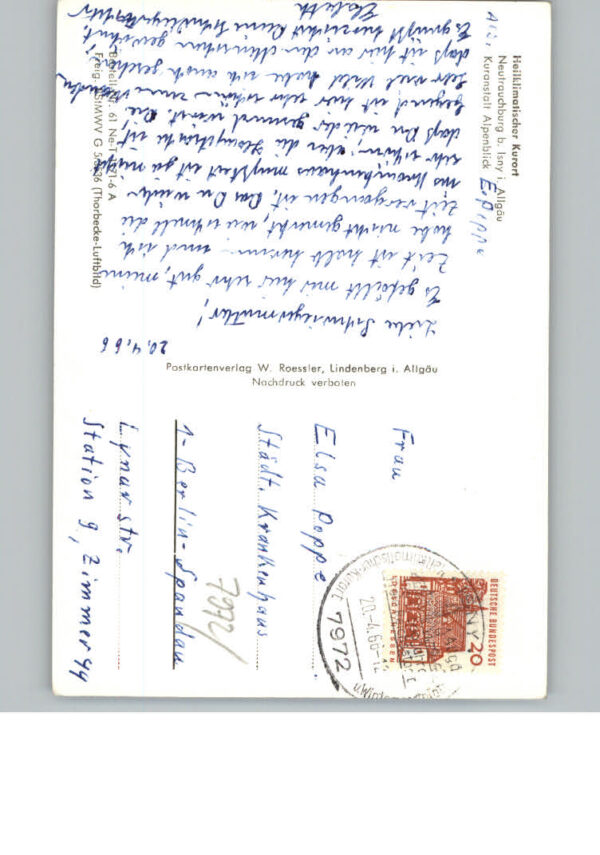 Heilklimatischer Kurort
Neutrauchburg b. Isny i. Allgäu
Kuranstalt Alpenblick
E. Poppe
20.4.66
Liebe Schwiegermutter!
Es gefällt mir hier sehr gut, meine
Zeit ist bald herum und ich
habe nicht gemerkt, wie schnell die
Zeit vergangen ist. Das Du wieder
ins Krankenhaus mußtest ist ja nicht
sehr schön, aber die Hauptsache ist
das Du wieder gesund wirst. Die
Gegend ist hier sehr schön zum wandern
sehr viel Wild habe ich auch gesehen
das ist hier an den Menschen gewöhnt.
Es grüßt herzlichst Deine Schwiegertochter
Bestell-Nr. 61 Ne-T 1271-6 A
Freig. (Thorbecke-Luftbild)
Postkartenverlag W. Roessler, Lindenberg i. Allgäu
Nachdruck verboten
DEUTSCHE BUNDESPOST
20
7972 ISNY
20.-4.66-12
Heilklimatischer Kurort
Frau
Elsa Poppe
Städt. Krankenhaus
1-Berlin-Spandau
Lynarstr.
Station 9, Zimmer 44
7972/